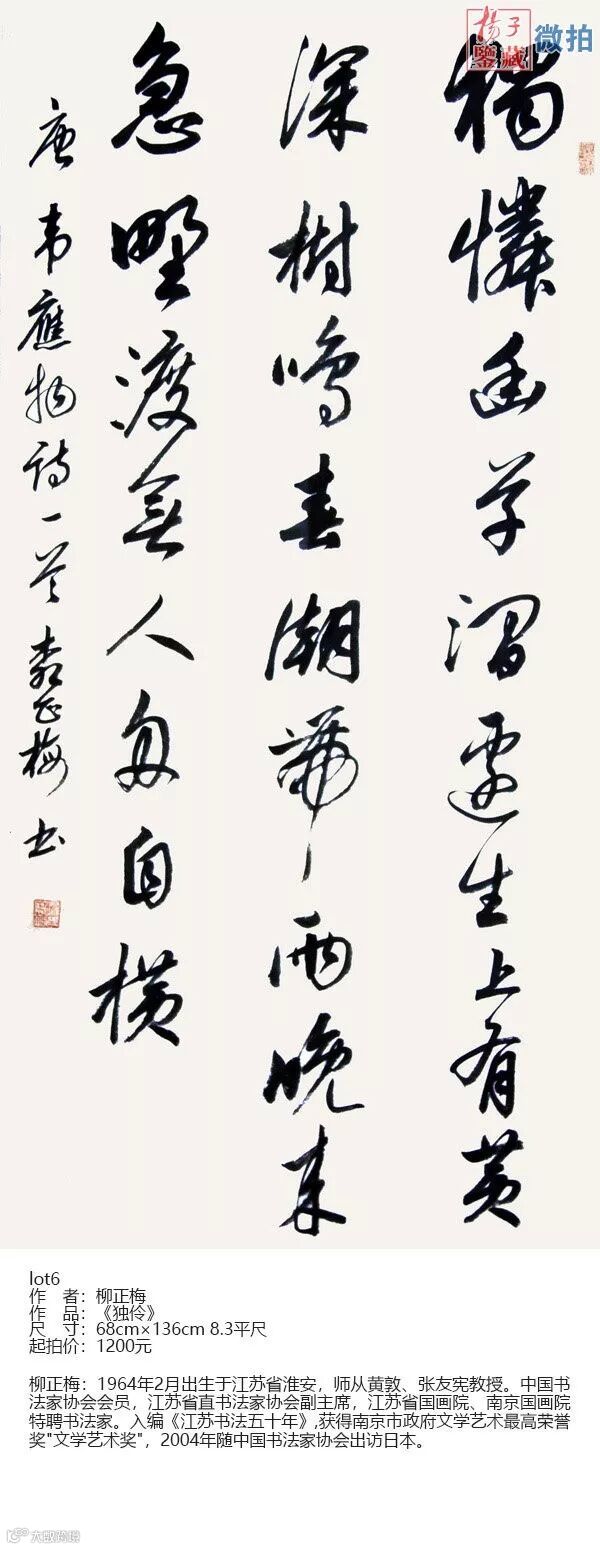 揚子
鑒藏
微拍
獨憐幽草澗邊生上有黃
深樹鳴春潮帶雨晚來
急野渡無人舟自橫
唐韋應物詩一首柳正梅书
lot6
作 者：柳正梅
作 品：《独伶》
尺 寸：68cm×136cm 8.3平尺
起拍价：1200元
柳正梅：1964年2月出生于江苏省淮安，师从黄敦、张友宪教授。中国书
法家协会会员，江苏省直书法家协会副主席，江苏省国画院、南京国画院
特聘书法家。入编《江苏书法五十年》,获得南京市政府文学艺术最高荣誉
奖"文学艺术奖"，2004年随中国书法家协会出访日本。